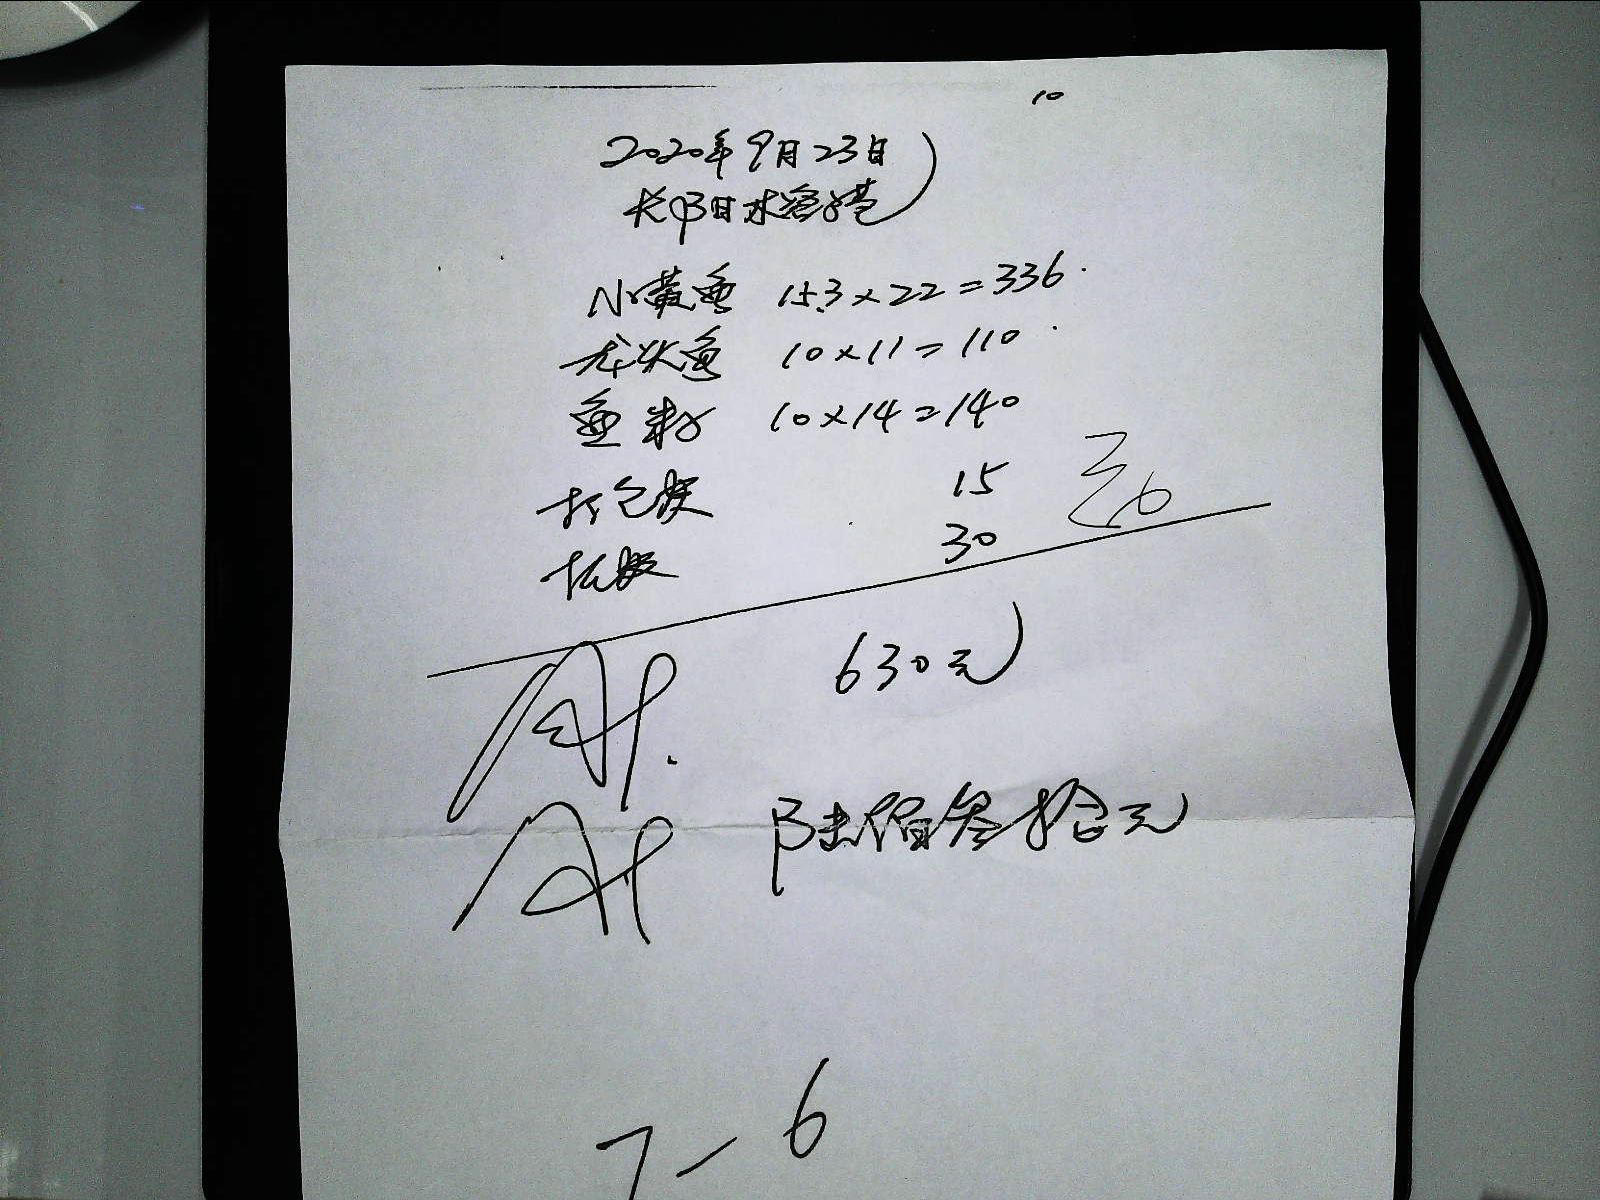 10
2020年9月23日
长阳水
小黄鱼 15.3×22=336
龙头鱼 10×11=110
鱼籽 10×14=140
打包费 15
30
630元
陆佰叁拾元
7-6